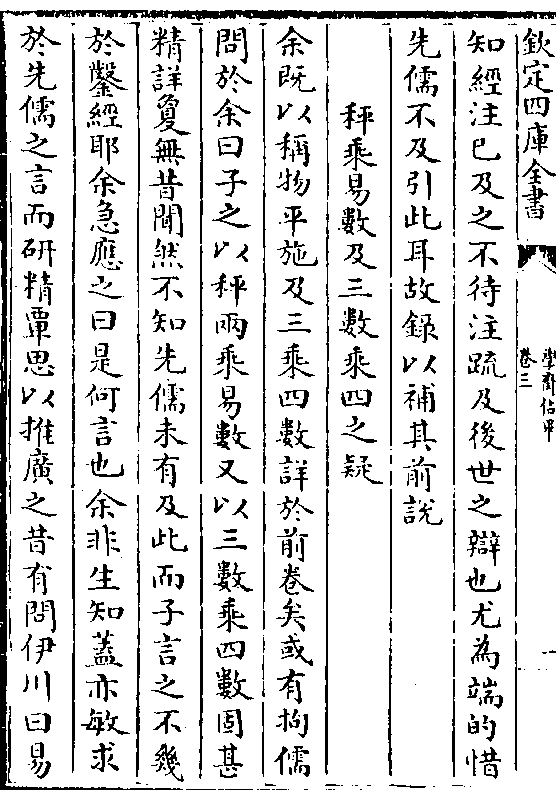 欽定四庫全書
學齋佔畢
卷三
知經注已及之不待注疏及後世之辯也尤為端的惜
先儒不及引此耳故錄以補其前説
秤乘易數及三數乘四之疑
余既以稱物平施及三乘四數詳於前卷矣或有拘儒
問於余曰子之以秤兩乘易數又以三數乘四數固甚
精詳敻無昔聞然不知先儒未有及此而子言之不幾
於鑿經耶余急應之曰是何言也余非生知蓋亦敏求
於先儒之言而研精覃思以推廣之昔有問伊川曰易